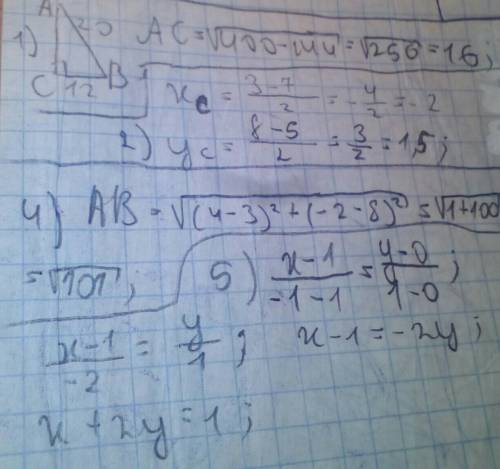 1) A 20 C 12 B AC = √400-144 = √256 = 16;
x_c = (3-7)/2 = -4/2 = -2
2) y_c = (8-5)/2 = 3/2 = 1,5;
4) AB = √(4-3)² + (-2-8)² = √1+100
= √101; 5) (x-1)/(-1-1) = (y-0)/(1-0);
(x-1)/(-2) = y/1; x-1 = -2y;
x + 2y = 1;